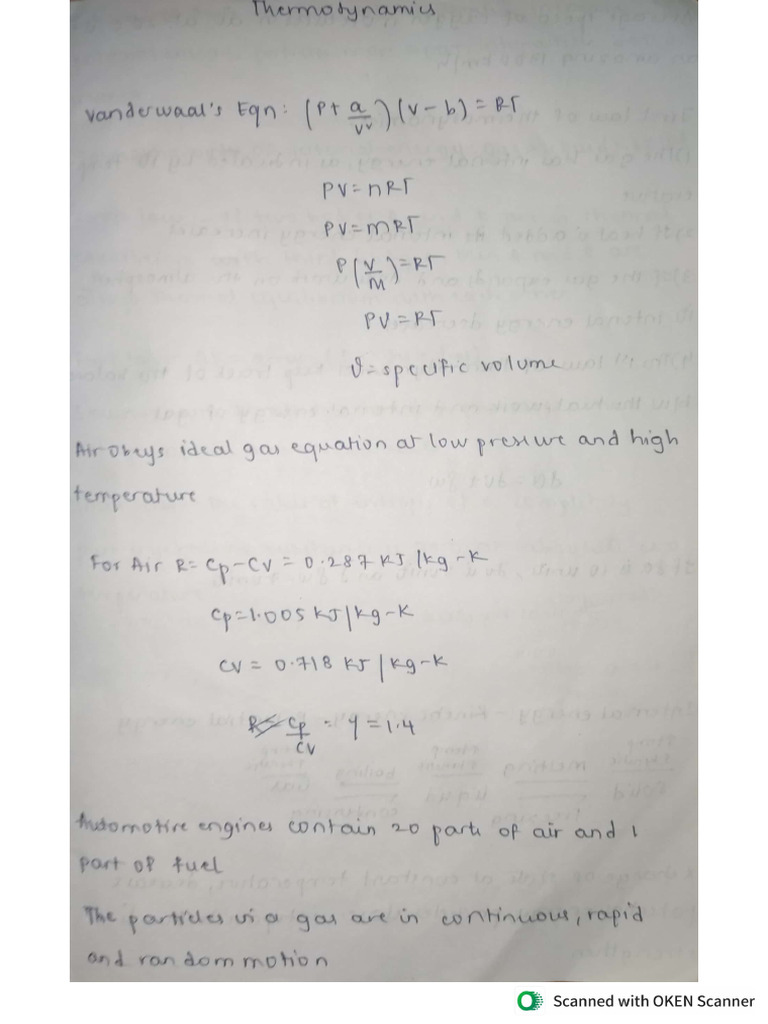 Thermodynamics
Vanderwaal's Eqn: (P+ a/v²)(v-b) = RT
PV=nRT
PV=mRT
P(V/M)=RT
PV=RT
ϑ=specific volume
Air obeys ideal gas equation at low pressure and high
temperature
For Air R= Cp-Cv = 0.287 KJ/kg-K
Cp=1.005 KJ/kg-K
CV = 0.718 KJ/kg-K
Cp/CV = γ =1.4
Automotive engines contain 20 parts of air and 1
part of fuel
The particles in a gas are in continuous, rapid
and random motion
Scanned with OKEN Scanner